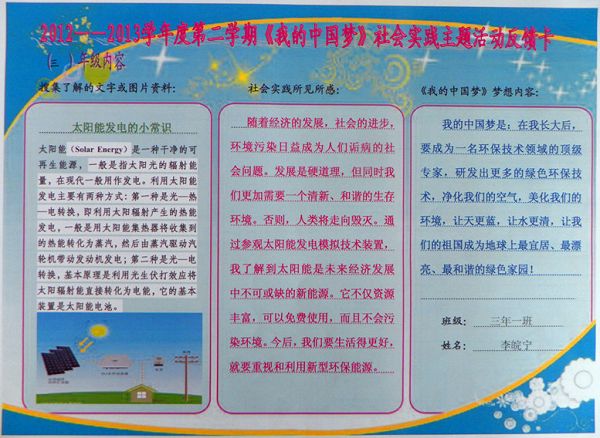 2012——2013学年度第二学期《我的中国梦》社会实践主题活动反馈卡
（三 ）年级内容
搜集了解的文字或图片资料：
太阳能发电的小常识
太阳能（Solar Energy）是一种干净的可
再生能源，一般是指太阳光的辐射能
量，在现代一般用作发电。利用太阳能
发电主要有两种方式：第一种是光—热
—电转换，即利用太阳辐射产生的热能
发电，一般是用太阳能集热器将收集到
的热能转化为蒸汽，然后由蒸汽驱动汽
轮机带动发动机发电；第二种是光—电
转换，基本原理是利用光生伏打效应将
太阳辐射能直接转化为电能，它的基本
装置是太阳能电池。
社会实践所见所感：
随着经济的发展，社会的进步，
环境污染日益成为人们诟病的社
会问题。发展是硬道理，但同时我
们更加需要一个清新、和谐的生存
环境。否则，人类将走向毁灭。通
过参观太阳能发电模拟技术装置，
我了解到太阳能是未来经济发展
中不可或缺的新能源。它不仅资源
丰富，可以免费使用，而且不会污
染环境。今后，我们要生活得更好，
就要重视和利用新型环保能源。
《我的中国梦》梦想内容：
我的中国梦是：在我长大后，
要成为一名环保技术领域的顶级
专家，研发出更多的绿色环保技
术，净化我们的空气，美化我们的
环境，让天更蓝，让水更清，让我
们的祖国成为地球上最宜居、最漂
亮、最和谐的绿色家园！
班级： 三年一班
姓名： 李皖宁